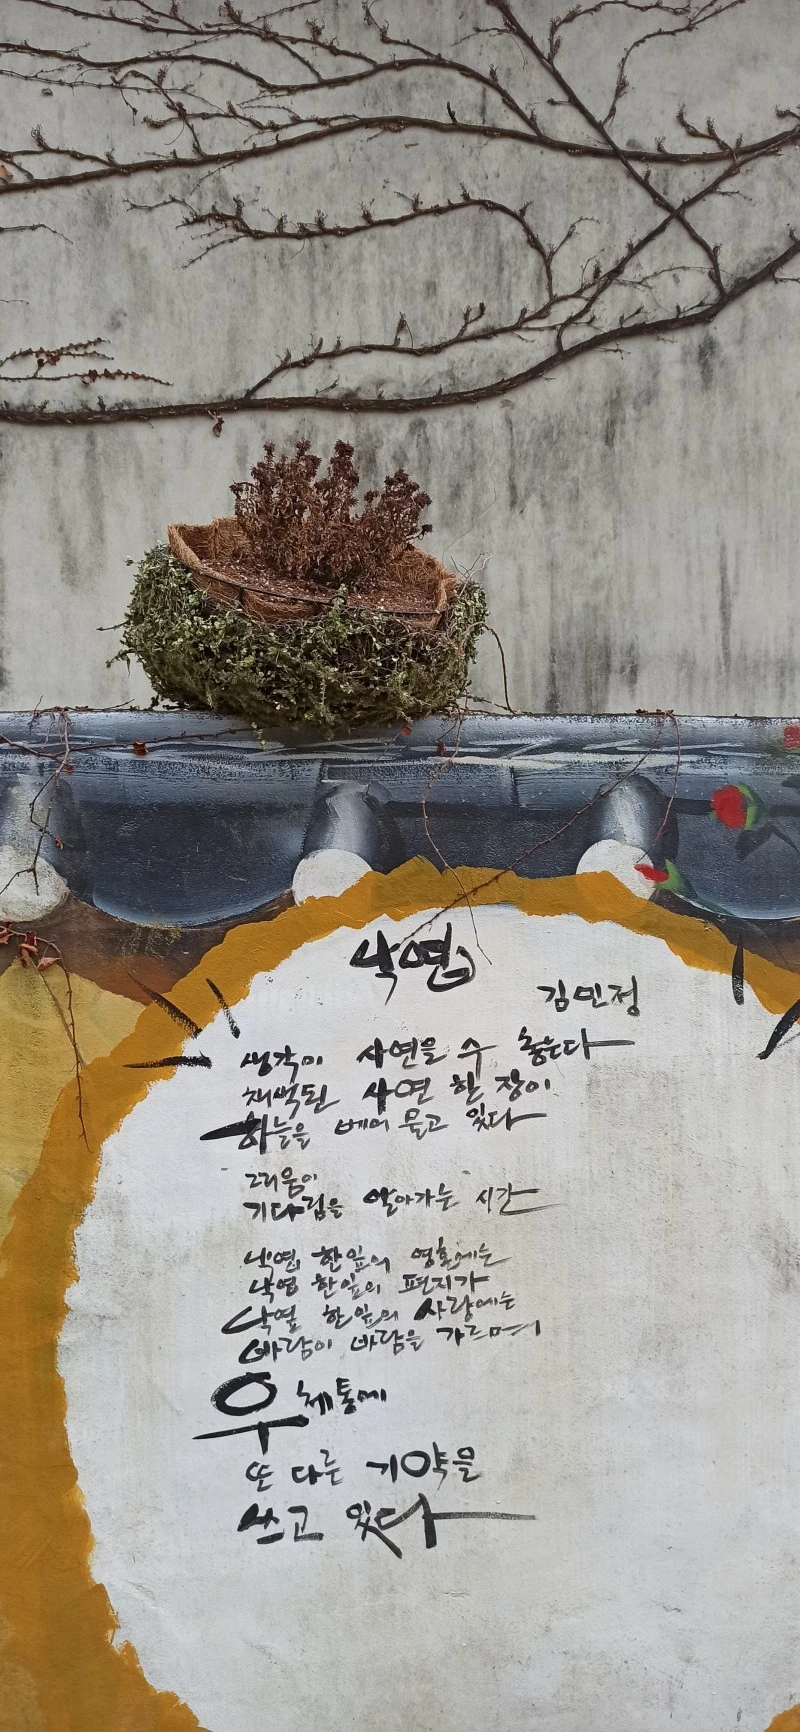 낙엽
김민정
생각이 사연을 수 놓는다
채색된 사연 한 장이
하늘을 베어 물고 있다
그리움이
기다림을 알아가는 시간
낙엽 한잎의 영혼에는
낙엽 한잎의 편지가
낙엽 한잎의 사랑에는
바람이 바람을 가르며
우체통에
또 다른 기약을
쓰고 있다